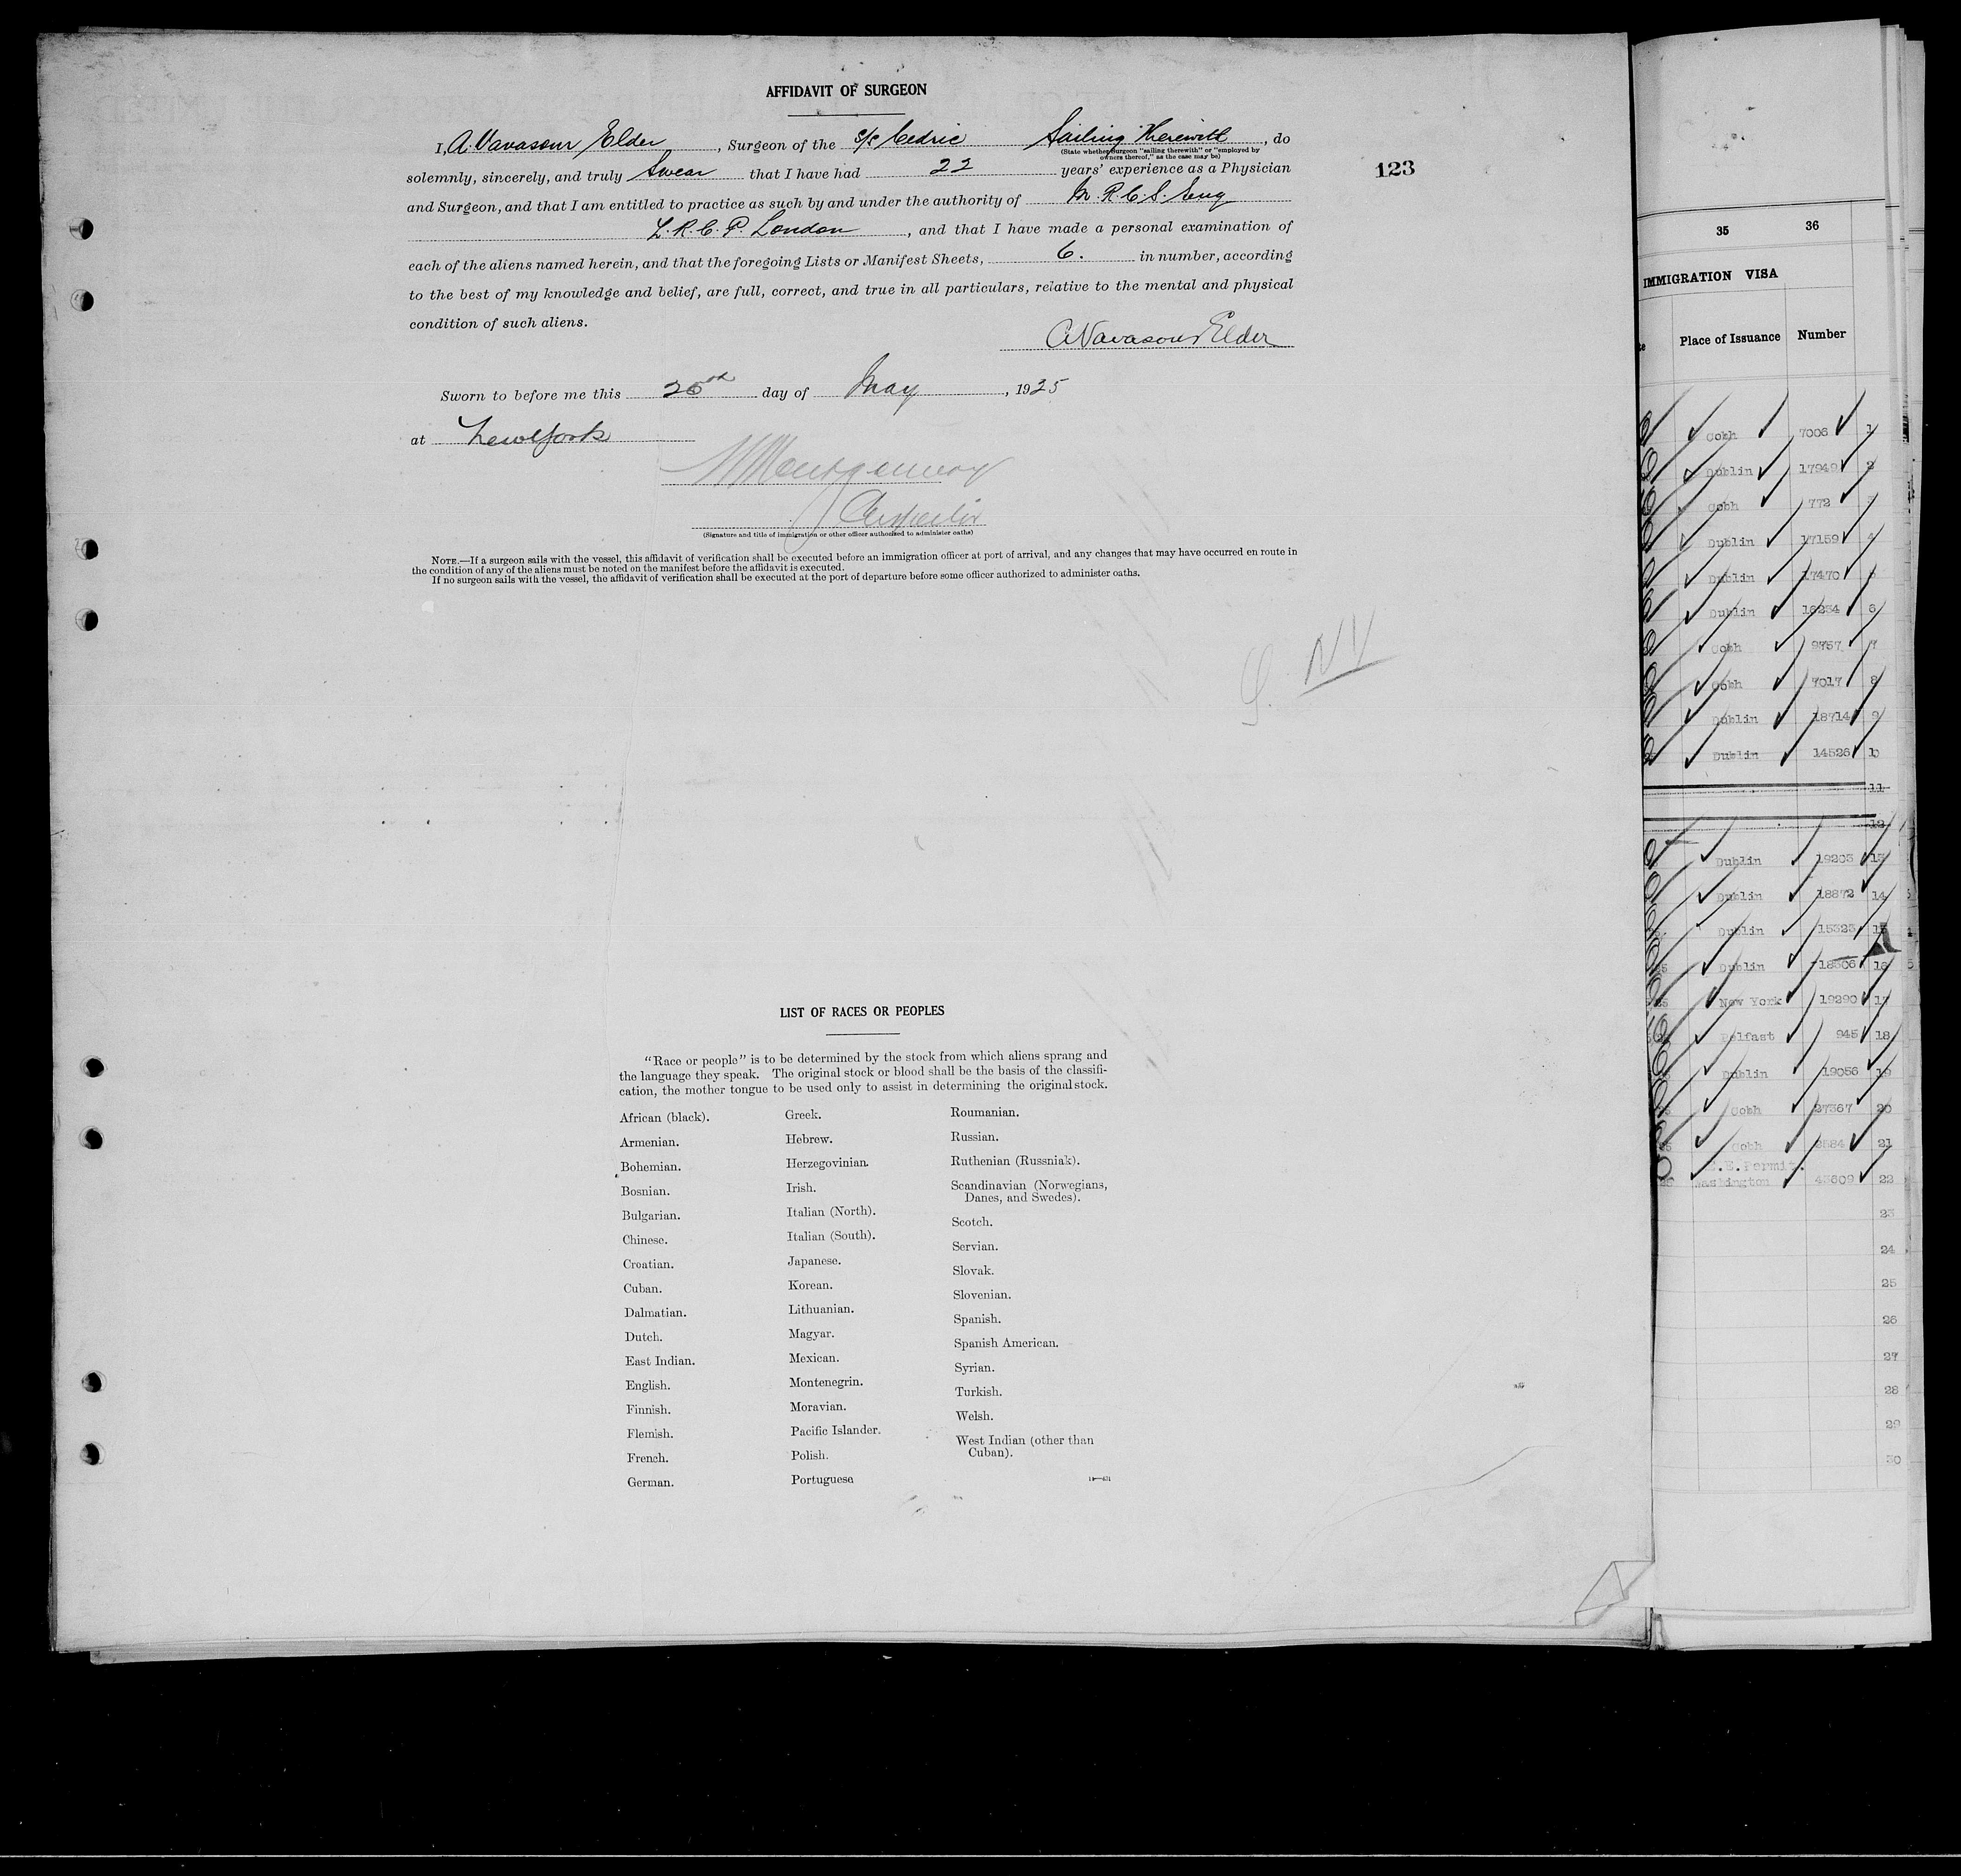 AFFIDAVIT OF SURGEON
I, A. Vavasour Elder, Surgeon of the s/s Cedric Sailing Therewith, do
(State whether Surgeon "sailing therewith" or "employed by
owners thereof," as the case may be)
123
solemnly, sincerely, and truly Swear that I have had 22 years' experience as a Physician
and Surgeon, and that I am entitled to practice as such by and under the authority of M.R.C.S. Eng
L.R.C.P. London, and that I have made a personal examination of
each of the aliens named herein, and that the foregoing Lists or Manifest Sheets, 6. in number, according
to the best of my knowledge and belief, are full, correct, and true in all particulars, relative to the mental and physical
condition of such aliens.
A Vavasour Elder
Sworn to before me this day of May, 1925
at New York
Montgomery
(Signature and title of immigration or other officer authorized to administer oaths)
NOTE.—If a surgeon sails with the vessel, this affidavit of verification shall be executed before an immigration officer at port of arrival, and any changes that may have occurred en route in
the condition of any of the aliens must be noted on the manifest before the affidavit is executed.
If no surgeon sails with the vessel, the affidavit of verification shall be executed at the port of departure before some officer authorized to administer oaths.
NY
LIST OF RACES OR PEOPLES
"Race or people" is to be determined by the stock from which aliens sprang and
the language they speak. The original stock or blood shall be the basis of the classifi-
cation, the mother tongue to be used only to assist in determining the original stock.
African (black).
Armenian.
Bohemian.
Bosnian.
Bulgarian.
Chinese.
Croatian.
Cuban.
Dalmatian.
Dutch.
East Indian.
English.
Finnish.
Flemish.
French.
German.
Greek.
Hebrew.
Herzegovinian.
Irish.
Italian (North).
Italian (South).
Japanese.
Korean.
Lithuanian.
Magyar.
Mexican.
Montenegrin.
Moravian.
Pacific Islander.
Polish.
Portuguese
Roumanian.
Russian.
Ruthenian (Russniak).
Scandinavian (Norwegians,
Danes, and Swedes).
Scotch.
Servian.
Slovak.
Slovenian.
Spanish.
Spanish American.
Syrian.
Turkish.
Welsh.
West Indian (other than
Cuban).
35 36
IMMIGRATION VISA
Place of Issuance Number
Cobh 7006 1
Dublin 17949 2
Cobh 772 3
Dublin 17159 4
Dublin 17470 5
Dublin 18234 6
Cobh 9757 7
Cobh 7017 8
Dublin 18714 9
Dublin 14526 10
11
12
Dublin 19203 13
Dublin 18872 14
Dublin 15323 15
Dublin 18306 16
New York 19290 17
Belfast 945 18
Dublin 19056 19
Cobh 27367 20
Cobh 21
Permit.
Washington 43609 22
23
24
25
26
27
28
29
30